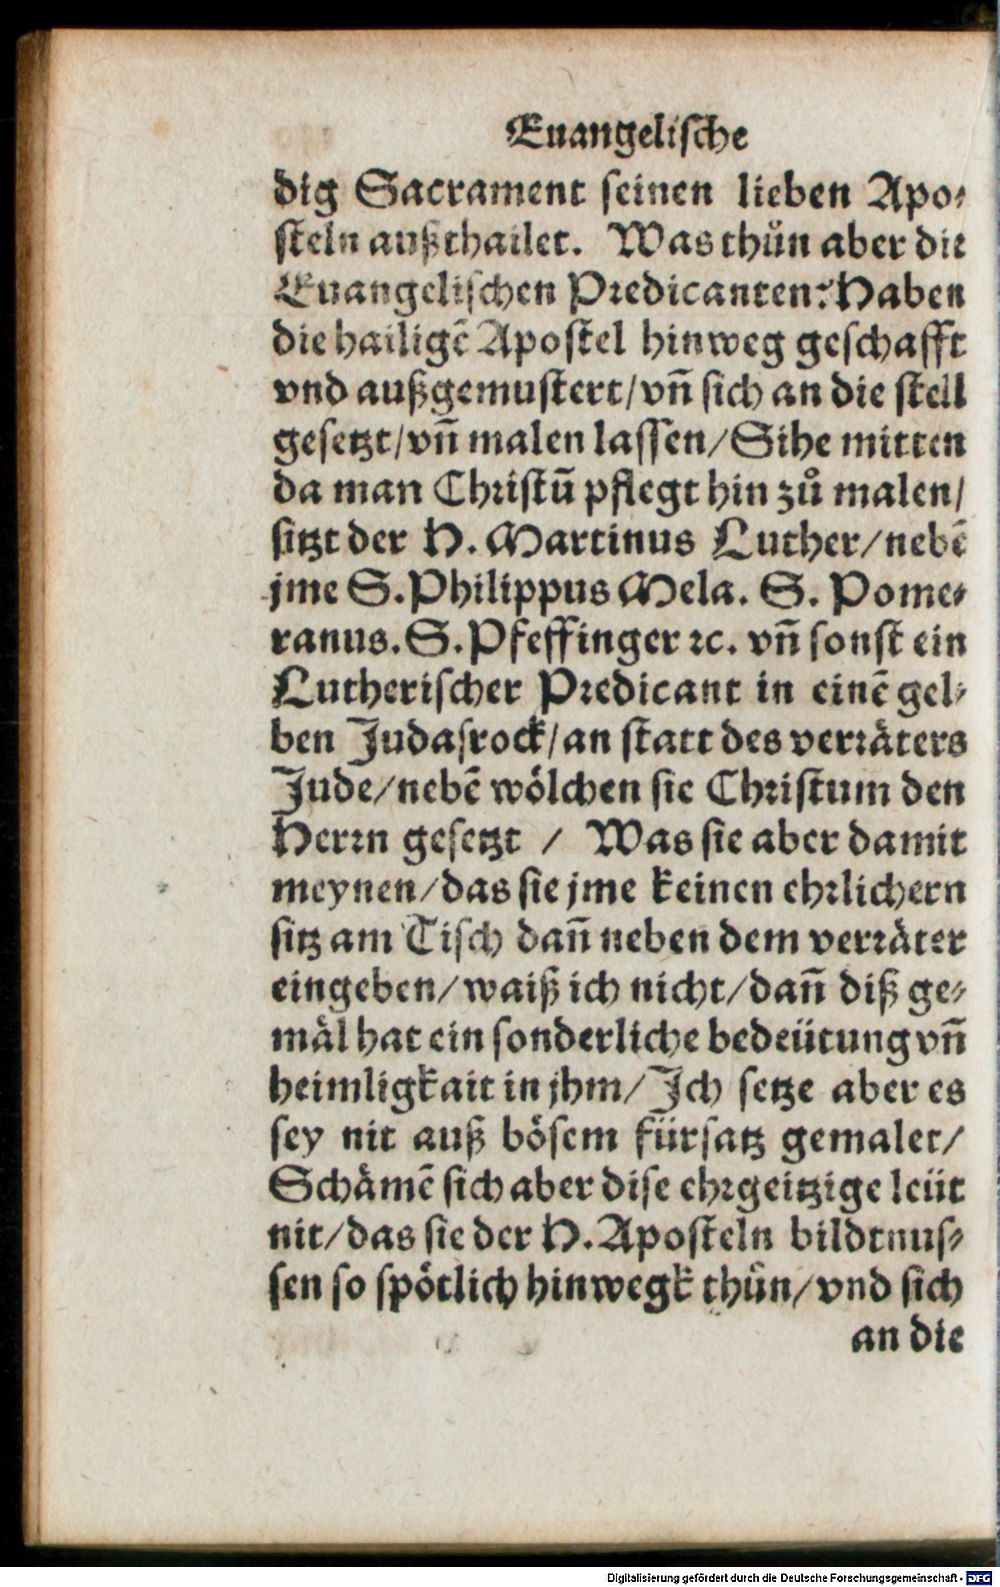 Euangelische
dig Sacrament seinen lieben Apo⸗
steln außthailet. Was thuͦn aber die
Euangelischen Predicanten? Haben
die hailigē Apostel hinweg geschafft
vnd außgemustert/ vn̄ sich an die stell
gesetzt/ vn̄ malen lassen/ Sihe mitten
da man Christū pflegt hin zuͦ malen/
sitzt der H. Martinus Luther/ nebē
jme S. Philippus Mela. S. Pome⸗
ranus. S. Pfeffinger ꝛc. vn̄ sonst ein
Lutherischer Predicant in einē gel⸗
ben Judasrock/ an statt des verräters
Jude/ nebē wölchen sie Christum den
Herrn gesetzt / Was sie aber damit
meynen/ das sie jme keinen ehrlichern
sitz am Tisch dan̄ neben dem verräter
eingeben/ waiß ich nicht/ dan̄ diß ge⸗
mäl hat ein sonderliche bedeütung vn̄
heimligkait in jhm/ Ich setze aber es
sey nit auß bösem fürsatz gemalet/
Schämē sich aber dise ehrgeitzige leüt
nit/ das sie der H. Aposteln bildtnus⸗
sen so spötlich hinwegk thuͦn/ vnd sich
an die
Digitalisierung gefördert durch die Deutsche Forschungsgemeinschaft - DFG